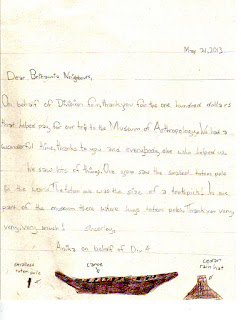 May 21, 2013.
Dear, Britannia Neighours,
On behalf of Division for, thank you for the one hundred dollars
that helped pay for our trip to the Museum of Anthropology. We had a
wonderful time, thanks to you and everybody else who helped us.
We saw lots of things. One guy saw the smallest totem pole
in the world. The totem was the size of a toothpick! In one
part of the museum there where huge totem poles. Thank you very,
very, very, much! Sincerely,
Anika on behalf of Div. 4
smallest
totem pole
canoe
cedar
rain hat